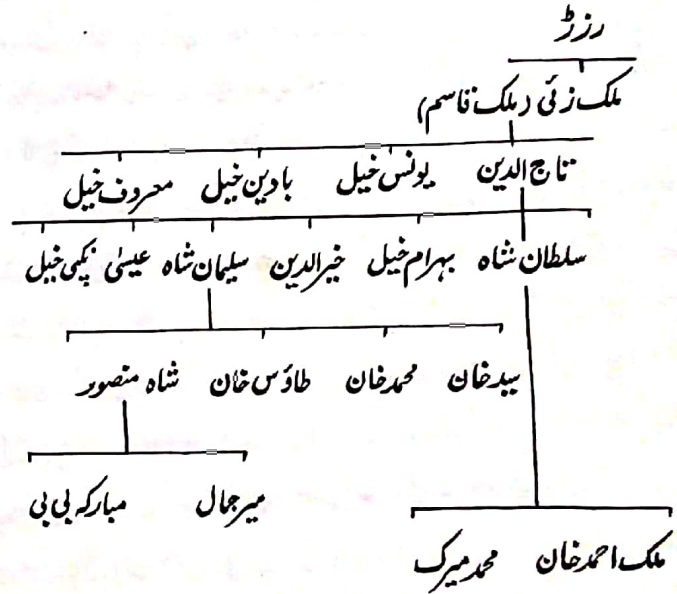 رزڑ
ملک زئی (ملک قاسم)
تاج الدین یونس خیل بادین خیل معروف خیل
سلطان شاہ بہرام خیل خیرالدین سلیمان شاہ عیسیٰ پکھی خیل
سید خان محمد خان طاؤس خان شاہ منصور
میر جمال مبارکہ بی بی
ملک احمد خان محمد میرک